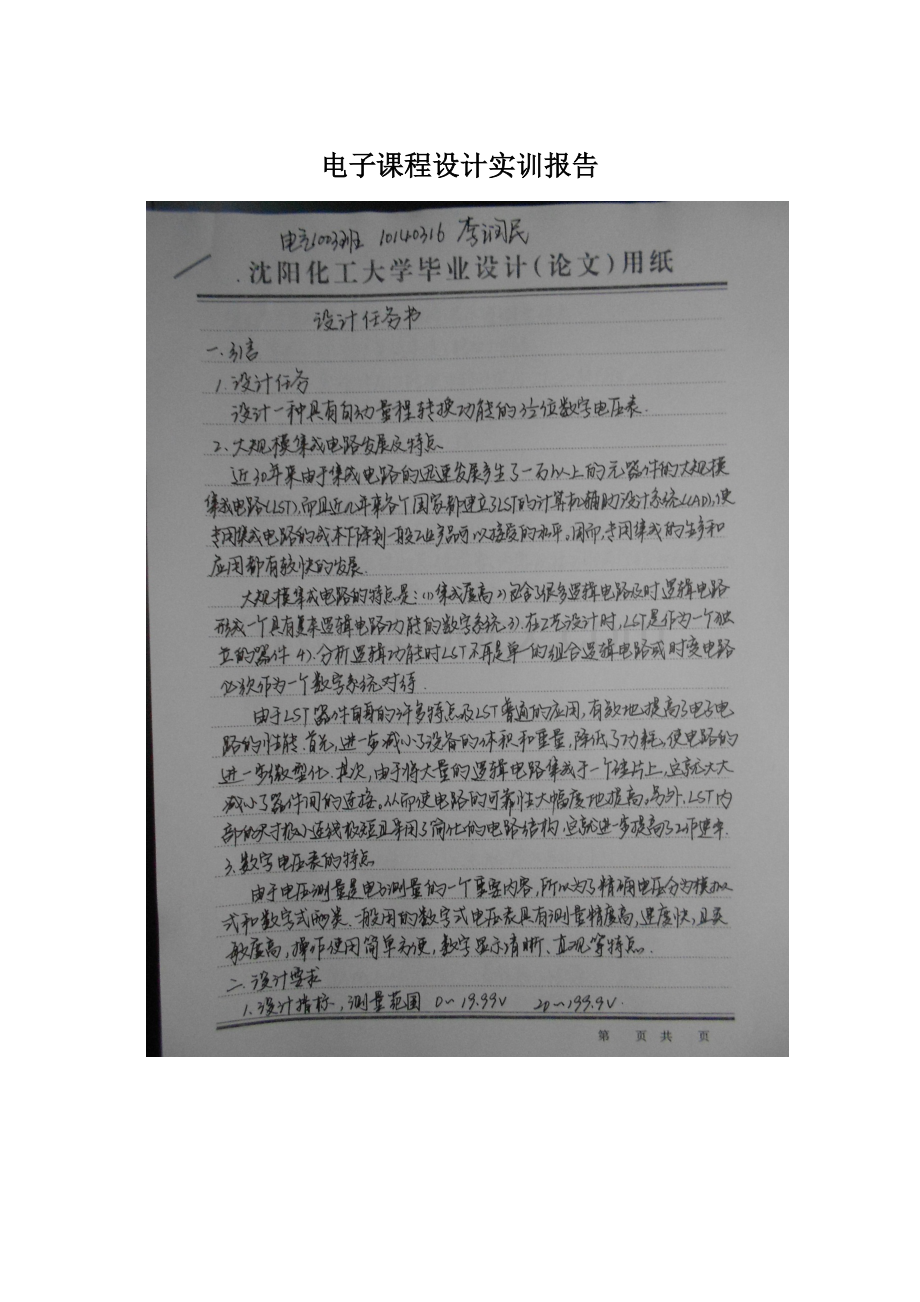 电子课程设计实训报告
电气1003班 10140316 李润民
沈阳化工大学毕业设计(论文)用纸
设计任务书
一.引言
1.设计任务
设计一种具有自动量程转换功能的3½位数字电压表.
2.大规模集成电路发展及特点
近30年来由于集成电路的迅速发展产生了一万以上的元器件的大规模
集成电路(LST),而且近几年来各个国家都建立了LST的计算机辅助设计系统(CAD),使
专用集成电路的成本下降到一般工业产品可以接受的水平。因而,专用集成的生产和
应用都有较快的发展.
大规模集成电路的特点是:(1)集成度高 2)包含了很多逻辑电路及时逻辑电路
形成一个具有复杂逻辑电路功能的数字系统 3).在工艺设计时,LST是作为一个独
立的器件 4).分析逻辑功能时LST不再是单一的组合逻辑电路或时变电路
必次作为一个数字系统对待.
由于LST器件自身的许多特点及LST普遍的应用,有效地提高了电子电
路的性能.首先,进一步减小了设备的体积和重量,降低了功耗,使电路的
进一步微型化.其次,由于将大量的逻辑电路集成于一个硅片上,这就大大
减小了器件间的连接。从而使电路的可靠性大幅度地提高。另外,LST内
部的尺寸极小连线极短且采用了简化的电路结构.这就进一步提高了工作速率.
3.数字电压表的特点
由于电压测量是电子测量的一个重要内容,所以为了精确电压分为模拟
式和数字式两类.一般用的数字式电压表具有测量精度高,速度快,且灵
敏度高,操作使用简单方便,数字显示清晰、直观等特点.
二.设计要求
1.设计指标,测量范围 0~19.99V 20~199.9V.
第 页 共 页